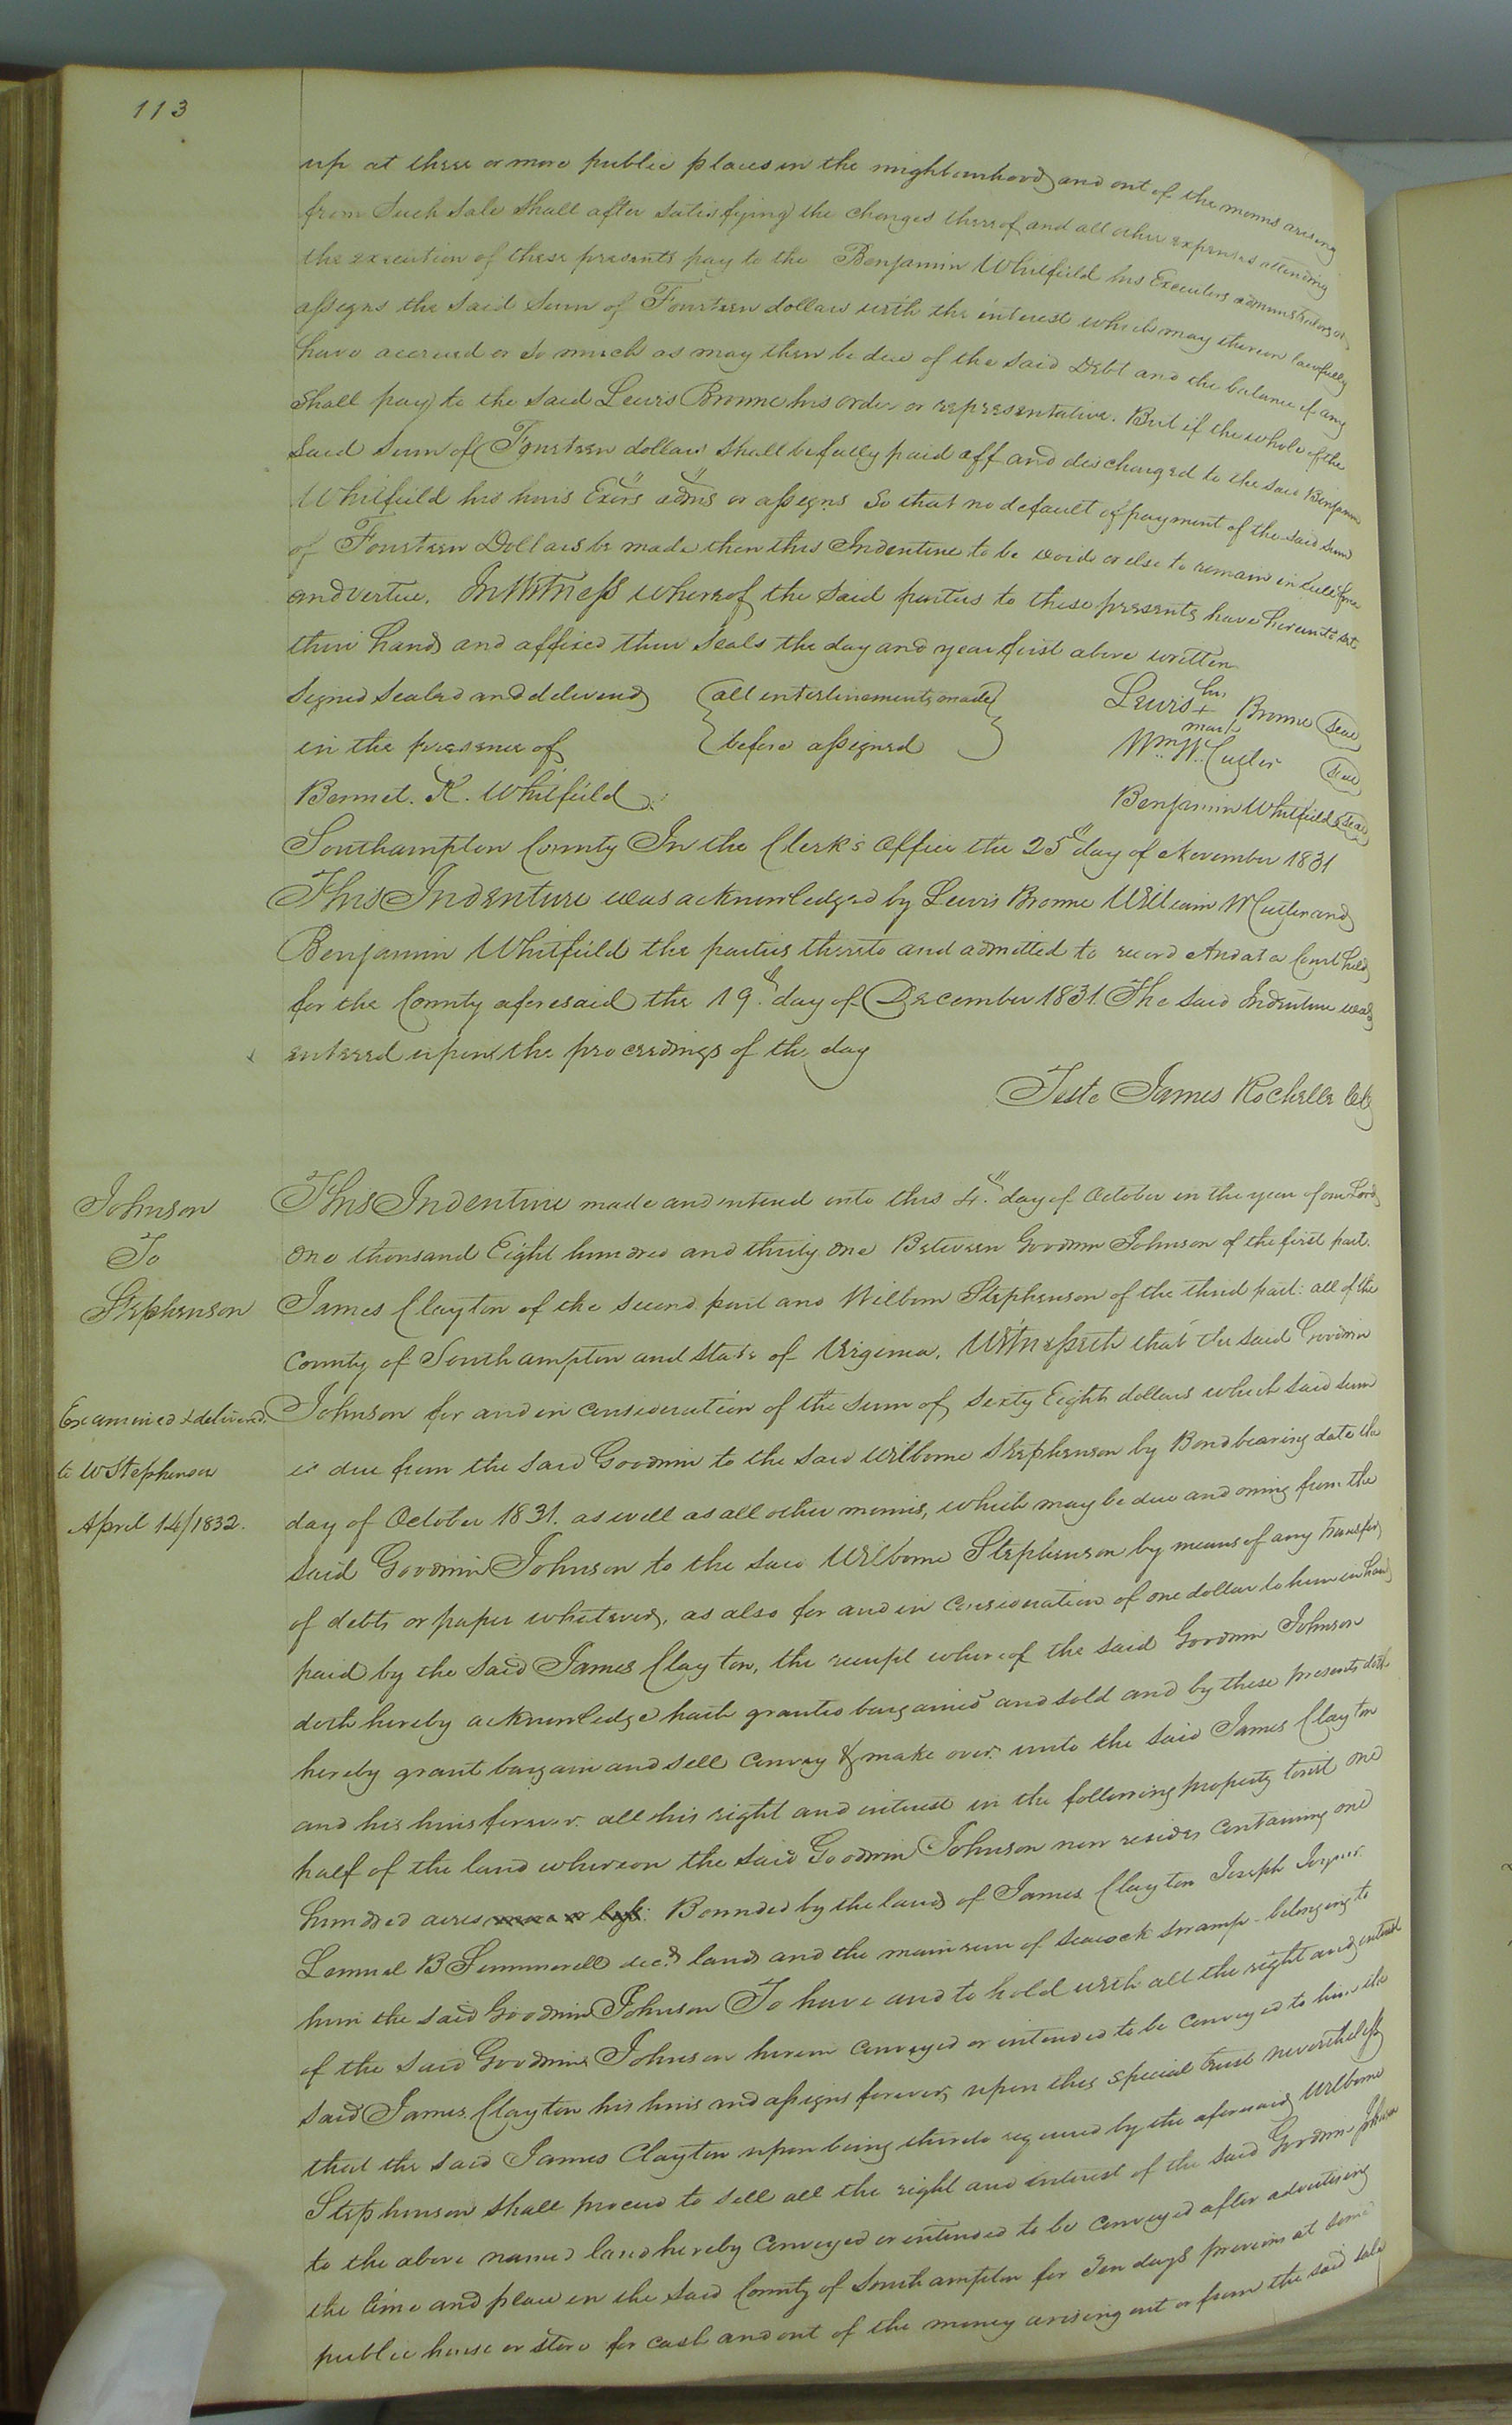 113
up at three or more public places in the neighbourhood and out of the monies arising
from Such Sale Shall after Satisfying the charges thereof and all other expenses attending
the execution of these presents pay to the Benjamin Whitfield his Executors administrators or
assigns the Said Sum of Fourteen dollars with the interest which may thereon lawfully
have accrued or So much as may then be due of the Said Debt and the balance if any
Shall pay to the Said Lewis Bronne his order or representative. But if the whole of the
Said Sum of Fourteen dollars Shall be fully paid off and discharged to the Said Benjamin
Whitfield his heirs Exors adms or assigns So that no default of payment of the Said Sum
of Fourteen Dollars be made then this Indenture to be void or else to remain in full force
and vertue. In Witness whereof the Said parties to these presents have hereunto set
their hands and affixed their Seals the day and year first above written
Signed Sealed and delivered (all interlinements made Lewis his + mark Bronne (Seal)
in the presence of before assigned) Wm. W. Cutler (Seal)
Bennet. K. Whitfield Benjamin Whitfield (Seal)
Southampton County In the Clerk's Office the 25th day of November 1831
This Indenture was acknowledged by Lewis Bronne William W Cutler and
Benjamin Whitfield the parties thereto and admitted to record And at a Court held
for the County aforesaid the 19th day of December 1831. The Said Indenture was
entered upon the proceedings of the day
Teste James Rochelle Clk
Johnson
To
Stephenson
This Indenture made and entered into this 4th day of October in the year of our Lord
One thousand Eight hundred and thirty one Between Goodwin Johnson of the first part.
James Clayton of the Second part and Wilborn Stephenson of the third part: all of the
County of Southampton and State of Virginia. Witnesseth that the said Goodwin
Examined & delivered
to W Stephenson
April 14/1832.
Johnson for and in consideration of the Sum of Sixty Eight dollars which said sum
is due from the Said Goodwin to the Said Wilborne Stephenson by Bond bearing date the
day of October 1831. as well as all other monies, which may be due and owing from the
Said Goodwin Johnson to the Said Wilborne Stephenson by means of any transfer
of debts or paper whatever, as also for and in Consideration of one dollar to him in hand
paid by the Said James Clayton, the receipt whereof the Said Goodwin Johnson
doth hereby acknowledge hath granted bargained and Sold and by these presents doth
hereby grant bargain and Sell Convey & make over unto the Said James Clayton
and his heirs forever. all his right and interest in the following property towit one
half of the land whereon the Said Goodwin Johnson now resides Containing one
hundred acres more or less: Bounded by the lands of James Clayton Joseph Joyner
Lemuel B Summerell decd. land and the main run of Seacock Swamp belonging to
him the Said Goodwin Johnson To have and to hold with all the right and interest
of the Said Goodwin Johnson herein Conveyed or intended to be Conveyed to him the
Said James Clayton his heirs and assigns forever, upon this Special trust nevertheless
that the Said James Clayton upon being thereto required by the aforesaid Wilborne
Stephenson Shall proceed to Sell all the right and interest of the Said Goodwin Johnson
to the above named land hereby Conveyed or intended to be Conveyed after advertising
the time and place in the Said County of Southampton for Ten days previous at Some
public house or Store for Cash and out of the money arising out or from the Said Sale